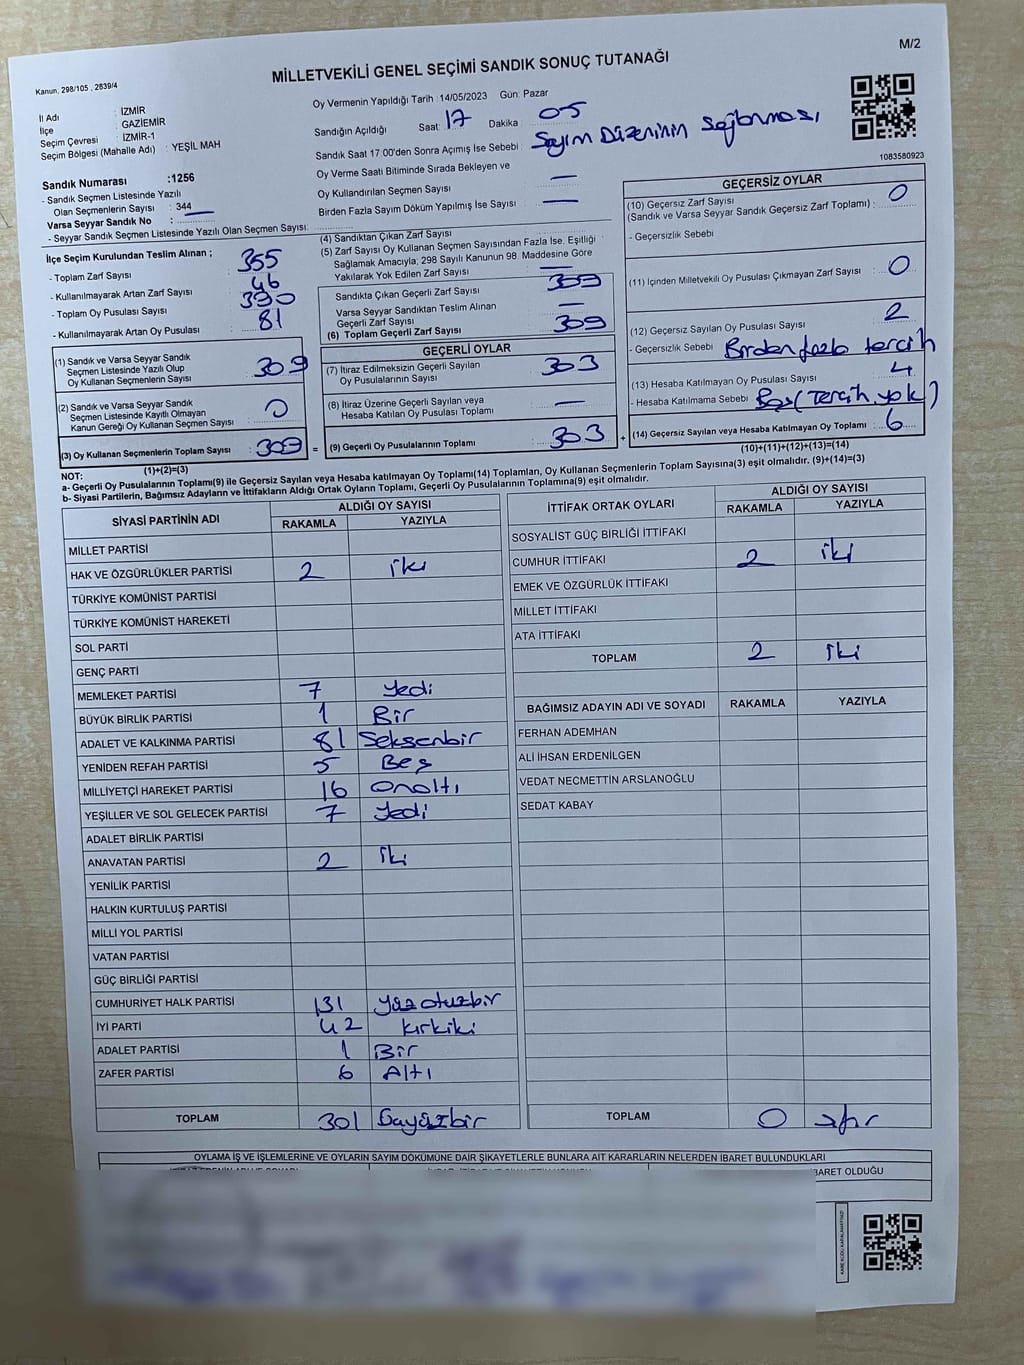 M/2
MİLLETVEKİLİ GENEL SEÇİMİ SANDIK SONUÇ TUTANAĞI
Kanun, 298/105 , 2839/4
İl Adı : İZMİR
İlçe : GAZİEMİR
Seçim Çevresi : İZMİR-1
Seçim Bölgesi (Mahalle Adı) : YEŞİL MAH
Sandık Numarası :1256
- Sandık Seçmen Listesinde Yazılı
Olan Seçmenlerin Sayısı : 344
Varsa Seyyar Sandık No :
- Seyyar Sandık Seçmen Listesinde Yazılı Olan Seçmen Sayısı:
Oy Vermenin Yapıldığı Tarih :14/05/2023 Gün: Pazar
Sandığın Açıldığı Saat: 17 Dakika 05
Sandık Saat 17:00'den Sonra Açımış İse Sebebi : Sayım Düzeninin Sağlanması
Oy Verme Saati Bitiminde Sırada Bekleyen ve
Oy Kullandırılan Seçmen Sayısı —
Birden Fazla Sayım Döküm Yapılmış İse Sayısı —
1083580923
İlçe Seçim Kurulundan Teslim Alınan ;
- Toplam Zarf Sayısı : 355
- Kullanılmayarak Artan Zarf Sayısı : 46
- Toplam Oy Pusulası Sayısı : 390
- Kullanılmayarak Artan Oy Pusulası : 81
(1) Sandık ve Varsa Seyyar Sandık
Seçmen Listesinde Yazılı Olup
Oy Kullanan Seçmenlerin Sayısı : 309
(2) Sandık ve Varsa Seyyar Sandık
Seçmen Listesinde Kayıtlı Olmayan
Kanun Gereği Oy Kullanan Seçmen Sayısı : 0
(3) Oy Kullanan Seçmenlerin Toplam Sayısı : 309 =
(1)+(2)=(3)
(4) Sandıktan Çıkan Zarf Sayısı
(5) Zarf Sayısı Oy Kullanan Seçmen Sayısından Fazla İse, Eşitliği
Sağlamak Amacıyla; 298 Sayılı Kanunun 98. Maddesine Göre
Yakılarak Yok Edilen Zarf Sayısı —
Sandıkta Çıkan Geçerli Zarf Sayısı 309
Varsa Seyyar Sandıktan Teslim Alınan
Geçerli Zarf Sayısı —
(6) Toplam Geçerli Zarf Sayısı 309
GEÇERLİ OYLAR
(7) İtiraz Edilmeksizin Geçerli Sayılan
Oy Pusulalarının Sayısı : 303
(8) İtiraz Üzerine Geçerli Sayılan veya
Hesaba Katılan Oy Pusulası Toplamı : —
(9) Geçerli Oy Pusulalarının Toplamı : 303 +
GEÇERSİZ OYLAR
(10) Geçersiz Zarf Sayısı
(Sandık ve Varsa Seyyar Sandık Geçersiz Zarf Toplamı) : 0
- Geçersizlik Sebebi
(11) İçinden Milletvekili Oy Pusulası Çıkmayan Zarf Sayısı : 0
(12) Geçersiz Sayılan Oy Pusulası Sayısı : 2
- Geçersizlik Sebebi : Birden fazla tercih
(13) Hesaba Katılmayan Oy Pusulası Sayısı : 4
- Hesaba Katılmama Sebebi : Boş (Tercih yok)
(14) Geçersiz Sayılan veya Hesaba Katılmayan Oy Toplamı : 6
(10)+(11)+(12)+(13)=(14)
NOT:
a- Geçerli Oy Pusulalarının Toplamı(9) ile Geçersiz Sayılan veya Hesaba katılmayan Oy Toplamı(14) Toplamları, Oy Kullanan Seçmenlerin Toplam Sayısına(3) eşit olmalıdır. (9)+(14)=(3)
b- Siyasi Partilerin, Bağımsız Adayların ve İttifakların Aldığı Ortak Oyların Toplamı, Geçerli Oy Pusulalarının Toplamına(9) eşit olmalıdır.
SİYASİ PARTİNİN ADI ALDIĞI OY SAYISI
RAKAMLA YAZIYLA
MİLLET PARTİSİ
HAK VE ÖZGÜRLÜKLER PARTİSİ 2 iki
TÜRKİYE KOMÜNİST PARTİSİ
TÜRKİYE KOMÜNİST HAREKETİ
SOL PARTİ
GENÇ PARTİ
MEMLEKET PARTİSİ 7 Yedi
BÜYÜK BİRLİK PARTİSİ 1 Bir
ADALET VE KALKINMA PARTİSİ 81 Seksenbir
YENİDEN REFAH PARTİSİ 5 Beş
MİLLİYETÇİ HAREKET PARTİSİ 16 Onaltı
YEŞİLLER VE SOL GELECEK PARTİSİ 7 Yedi
ADALET BİRLİK PARTİSİ
ANAVATAN PARTİSİ 2 İki
YENİLİK PARTİSİ
HALKIN KURTULUŞ PARTİSİ
MİLLİ YOL PARTİSİ
VATAN PARTİSİ
GÜÇ BİRLİĞİ PARTİSİ
CUMHURİYET HALK PARTİSİ 131 Yüzotuzbir
İYİ PARTİ 42 kırkiki
ADALET PARTİSİ 1 Bir
ZAFER PARTİSİ 6 Altı
TOPLAM 301 üçyüzbir
İTTİFAK ORTAK OYLARI ALDIĞI OY SAYISI
RAKAMLA YAZIYLA
SOSYALİST GÜÇ BİRLİĞİ İTTİFAKI
CUMHUR İTTİFAKI 2 iki
EMEK VE ÖZGÜRLÜK İTTİFAKI
MİLLET İTTİFAKI
ATA İTTİFAKI
TOPLAM 2 iki
BAĞIMSIZ ADAYIN ADI VE SOYADI RAKAMLA YAZIYLA
FERHAN ADEMHAN
ALİ İHSAN ERDENİLGEN
VEDAT NECMETTİN ARSLANOĞLU
SEDAT KABAY
TOPLAM 0 sıfır
OYLAMA İŞ VE İŞLEMLERİNE VE OYLARIN SAYIM DÖKÜMÜNE DAİR ŞİKAYETLERLE BUNLARA AİT KARARLARIN NELERDEN İBARET BULUNDUKLARI
BARET OLDUĞU